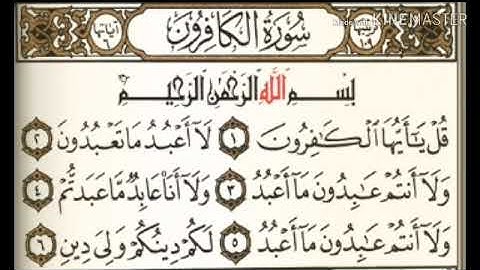 Made with KINEMASTER
آياتها ٦ سُورَةُ الكَافِرُونَ
بِسْمِ اللَّهِ الرَّحْمَٰنِ الرَّحِيمِ
قُلْ يَٰٓأَيُّهَا ٱلْكَٰفِرُونَ ١ لَآ أَعْبُدُ مَا تَعْبُدُونَ ٢
وَلَآ أَنتُمْ عَٰبِدُونَ مَآ أَعْبُدُ ٣ وَلَآ أَنَا۠ عَابِدٌ مَّا عَبَدتُّمْ ٤
وَلَآ أَنتُمْ عَٰبِدُونَ مَآ أَعْبُدُ ٥ لَكُمْ دِينُكُمْ وَلِيَ دِينِ ٦